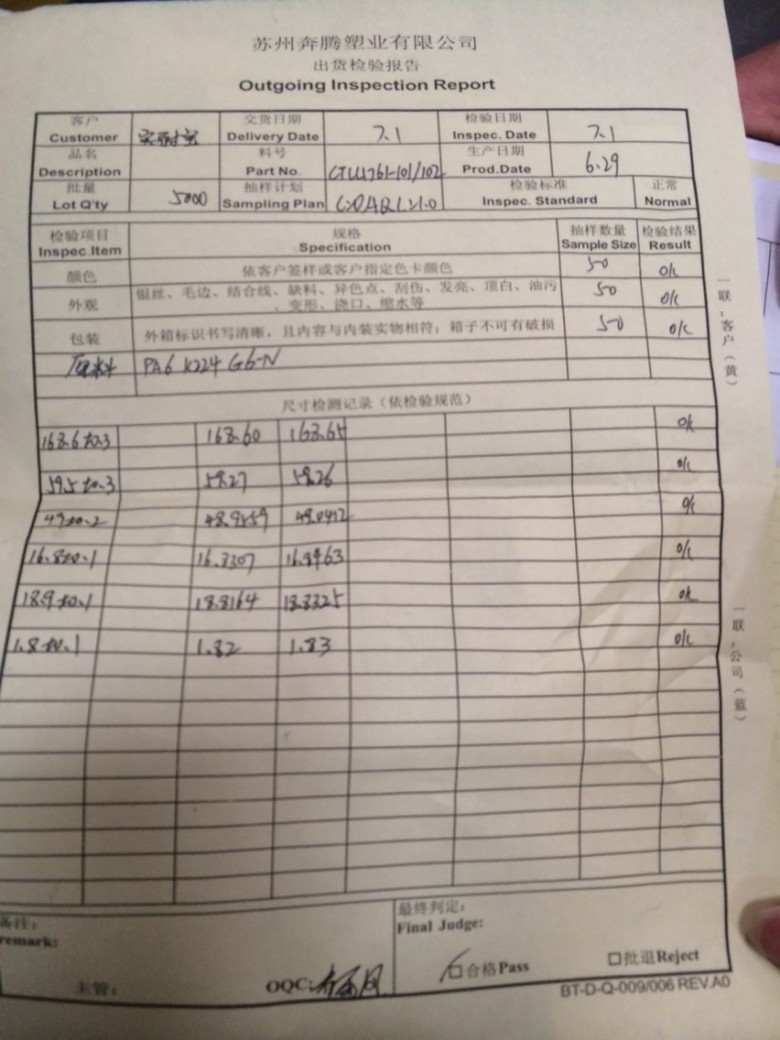 苏州奔腾塑业有限公司
出货检验报告
Outgoing Inspection Report
客户 交货日期 检验日期
Customer Delivery Date 7.1 Inspec. Date 7.1
品名 料号 生产日期
Description Part No. Prod.Date 6.29
批量 抽样计划 检验标准 正常
Lot Q'ty 5000 Sampling Plan Inspec. Standard Normal
检验项目 规格 抽样数量 检验结果
Inspec.Item Specification Sample Size Result
颜色 依客户签样或客户指定色卡颜色 50 ok
外观 银丝、毛边、结合线、缺料、异色点、刮伤、发亮、顶白、油污
、变形、浇口、缩水等 50 ok
包装 外箱标识书写清晰，且内容与内装实物相符；箱子不可有破损 50 ok
原料 PA6 K224 G6-N
尺寸检测记录（依检验规范）
168.6±0.3 168.60 168.65 ok
59.5±0.3 59.27 59.26 ok
49±0.2 48.9559 49.0412 ok
16.8±0.1 16.8307 16.8463 ok
18.9±0.1 18.8164 18.8325 ok
1.8±0.1 1.82 1.83 ok
一联，客户（黄）
一联，公司（蓝）
备注：
remark:
主管：
OQC:
最终判定：
Final Judge:
☐合格Pass ☐批退Reject
BT-D-Q-009/006 REV.A0